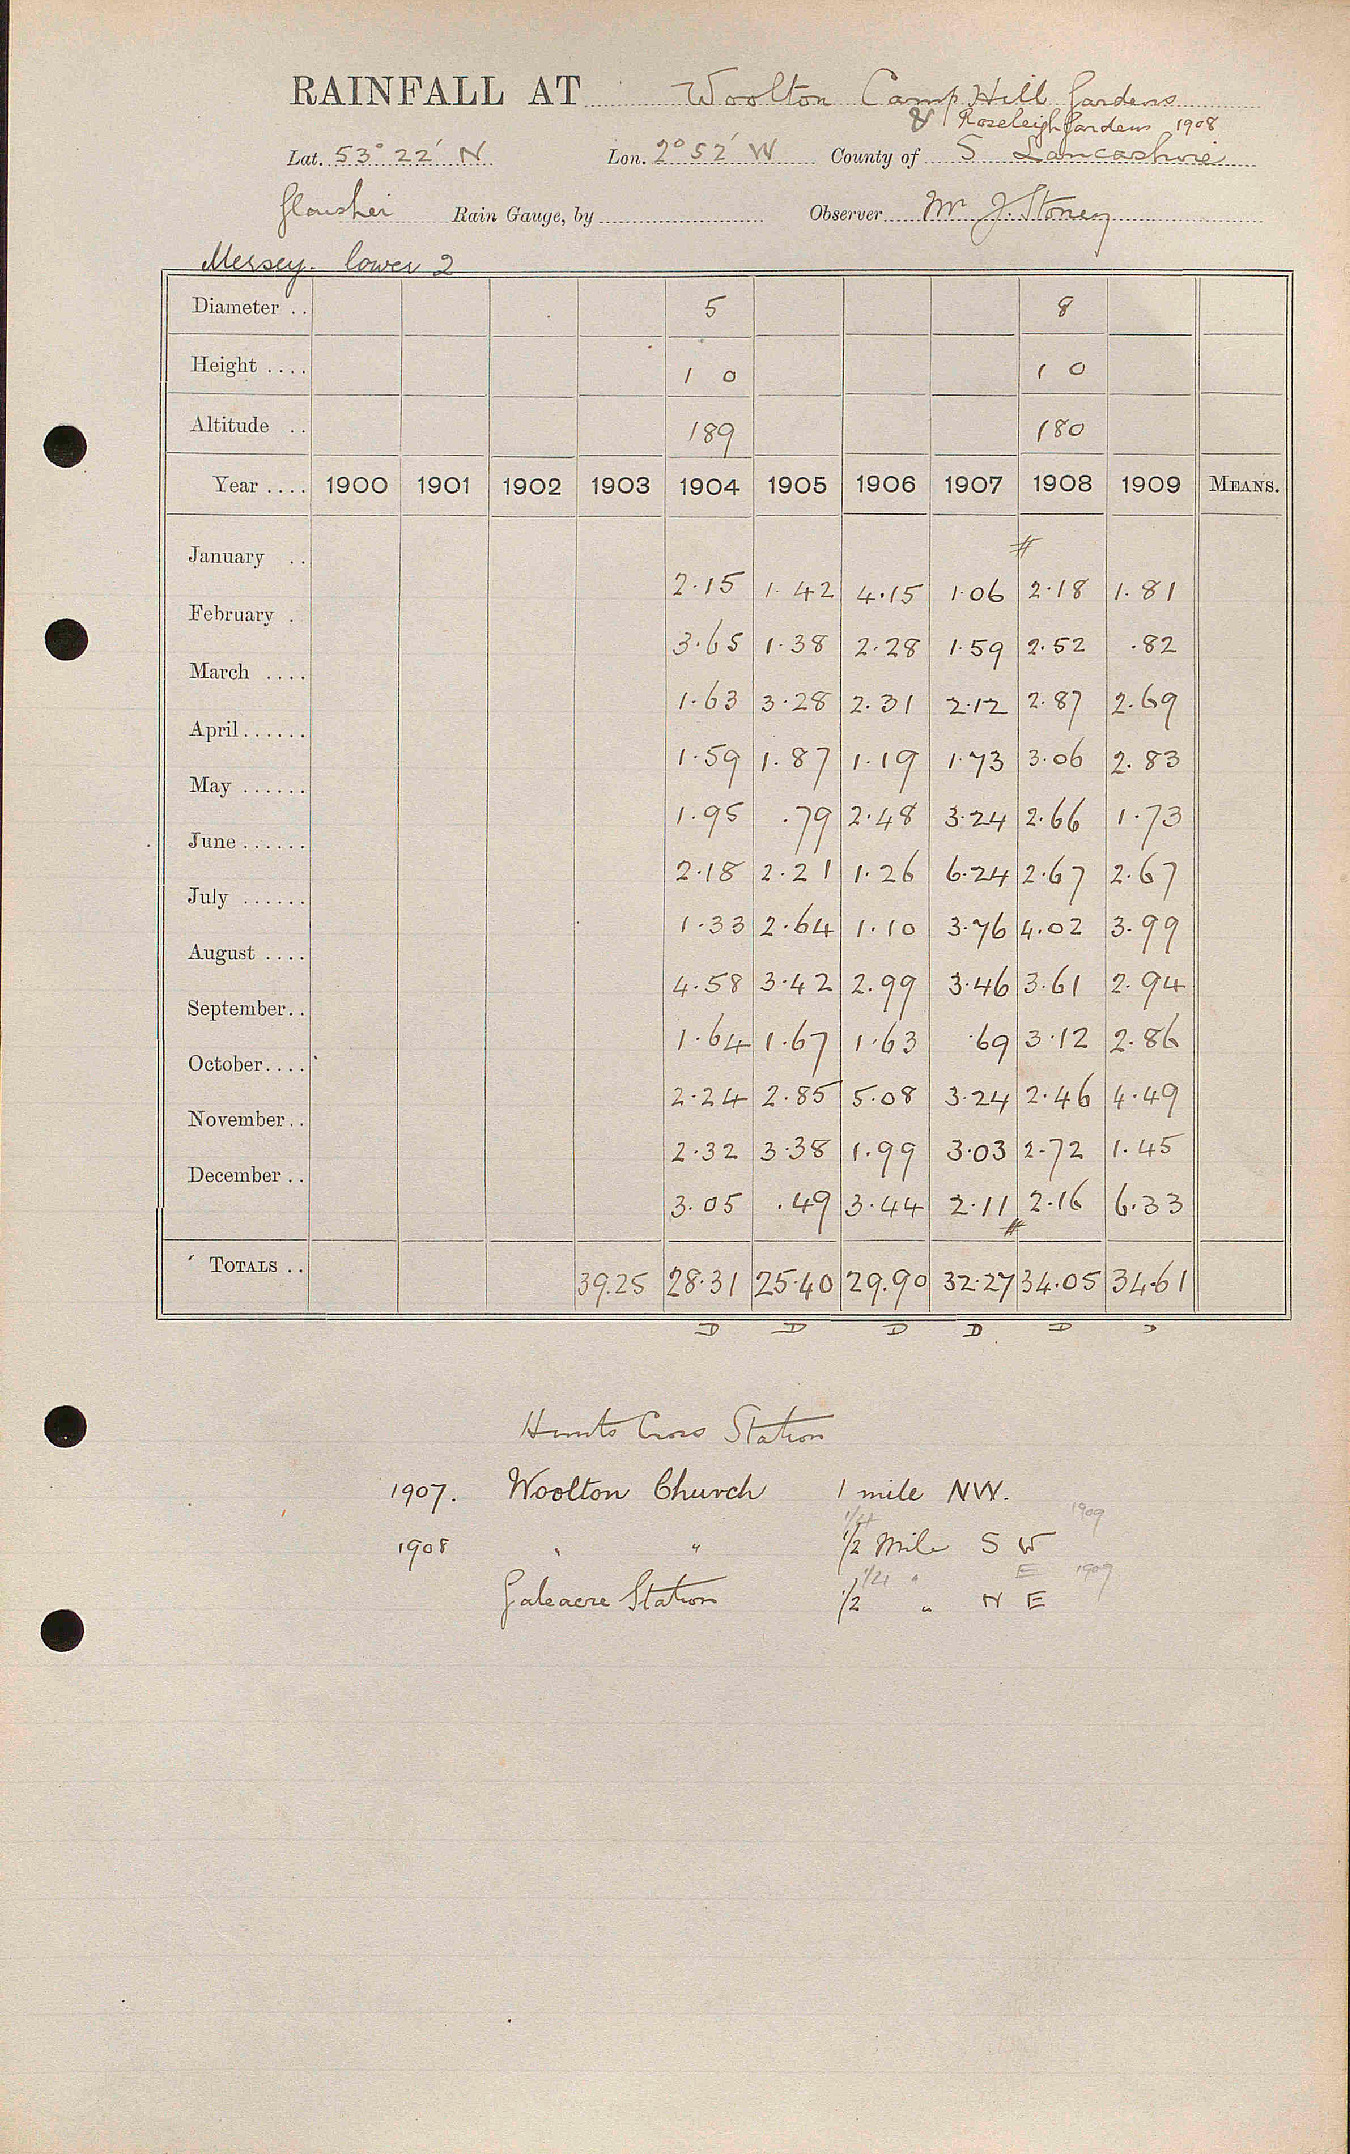 RAINFALL AT Woolton Camp Hill Gardens
& Roseleigh Gardens 1908
Lat. 53° 22' N Lon. 2° 52' W County of S Lancashire
Glaisher Rain Gauge, by Observer Mr J. Stoney
Mersey. lower 2
Diameter .. 5 8
Height .... 1 0 1 0
Altitude .. 189 180
Year .... 1900 1901 1902 1903 1904 1905 1906 1907 1908 1909 MEANS.
#
January .. 2.15 1.42 4.15 1.06 2.18 1.81
February . 3.65 1.38 2.28 1.59 2.52 .82
March .... 1.63 3.28 2.31 2.12 2.87 2.69
April ...... 1.59 1.87 1.19 1.73 3.06 2.83
May ...... 1.95 .79 2.48 3.24 2.66 1.73
June ...... 2.18 2.21 1.26 6.24 2.67 2.67
July ...... 1.33 2.64 1.10 3.76 4.02 3.99
August .... 4.58 3.42 2.99 3.46 3.61 2.94
September.. 1.64 1.67 1.63 .69 3.12 2.86
October.... 2.24 2.85 5.08 3.24 2.46 4.49
November.. 2.32 3.38 1.99 3.03 2.72 1.45
December .. 3.05 .49 3.44 2.11 2.16 6.33
#
TOTALS .. 39.25 28.31 25.40 29.90 32.27 34.05 34.61
D D D D D D
Hunts Cross Station
1907. Woolton Church 1 mile NW.
1/4 1909
1908 " " 1/2 Mile S W
1/4 " E 1909
Gateacre Station 1/2 " N E